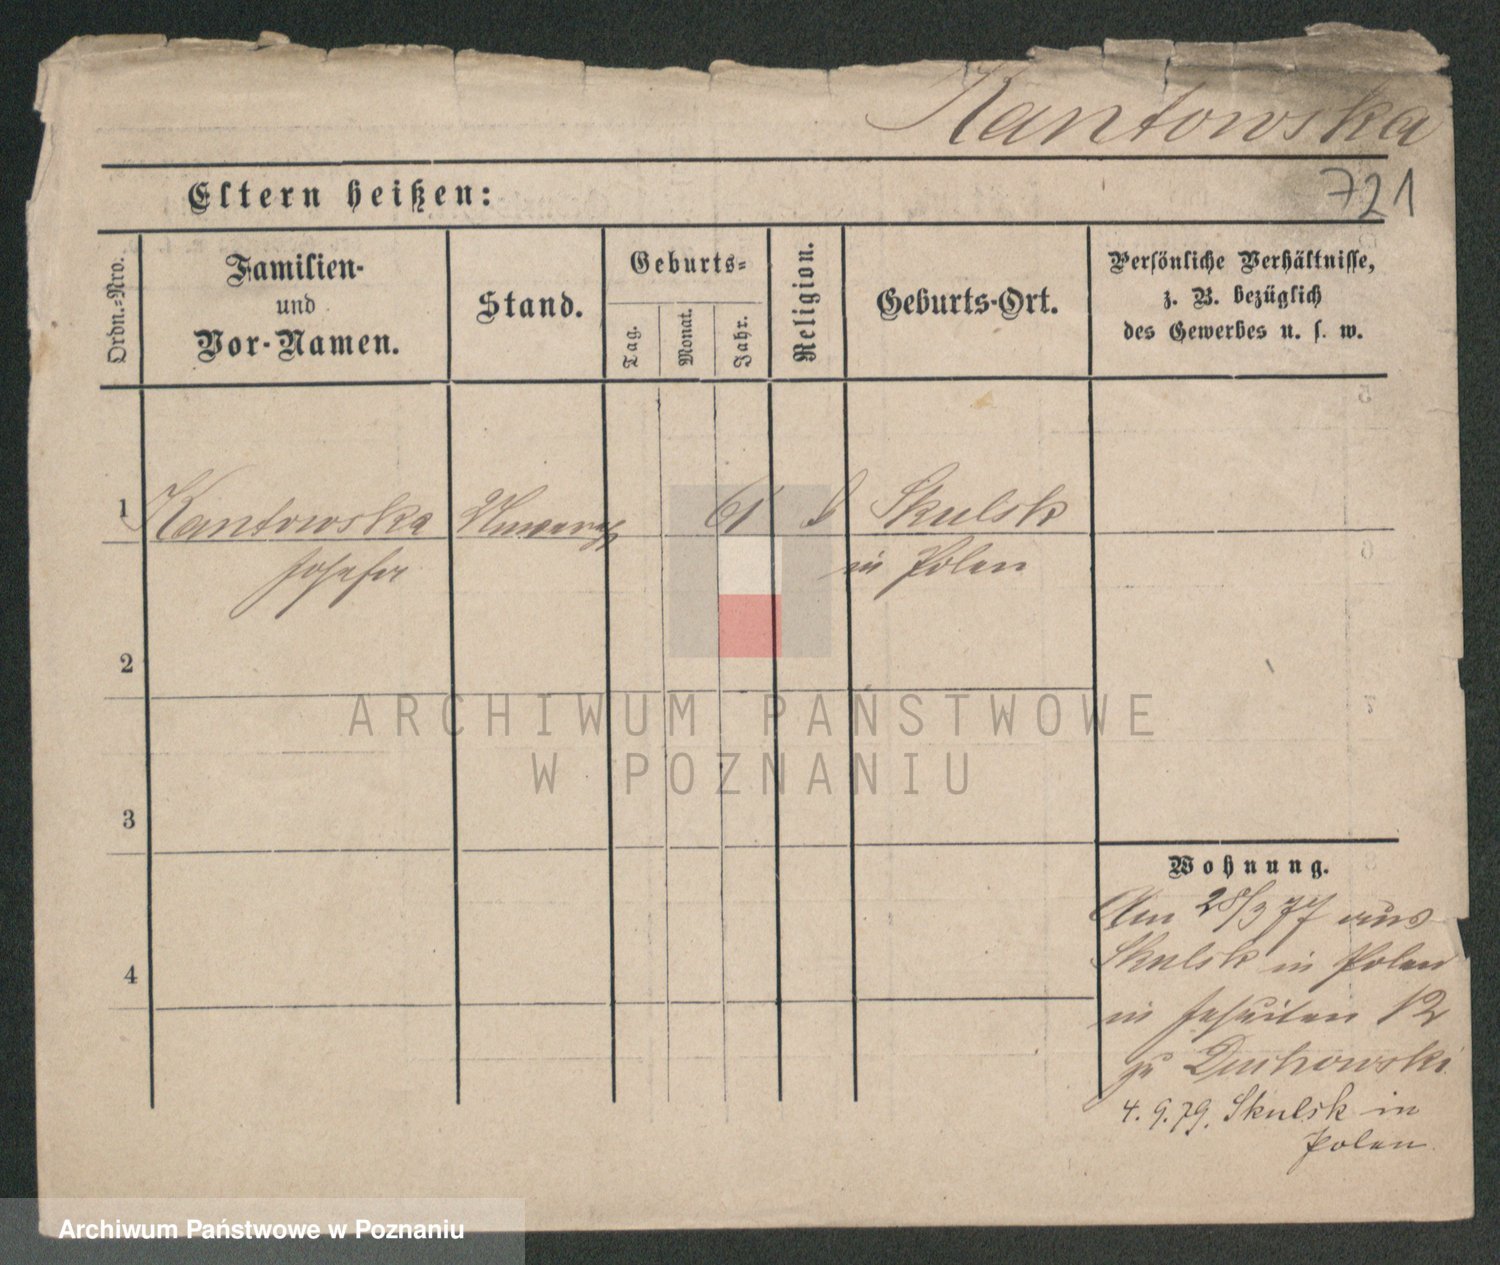 Kantowska
721
Eltern heißen:
Ordn.-Nro.
Familien-
und
Vor-Namen.
Stand.
Geburts-
Tag.
Monat.
Jahr.
Religion.
Geburts-Ort.
Persönliche Verhältnisse,
z. B. bezüglich
des Gewerbes u. s. w.
1 Kantowska 61 Skulsk
Josefa in Polen
2
3
4
ARCHIWUM PAŃSTWOWE
W POZNANIU
Wohnung.
Am 28/3 77 aus
Skulsk in Polen
in Jesuiten 12
zu Duchowski
4.9.79. Skulsk in
Polen.
Archiwum Państwowe w Poznaniu